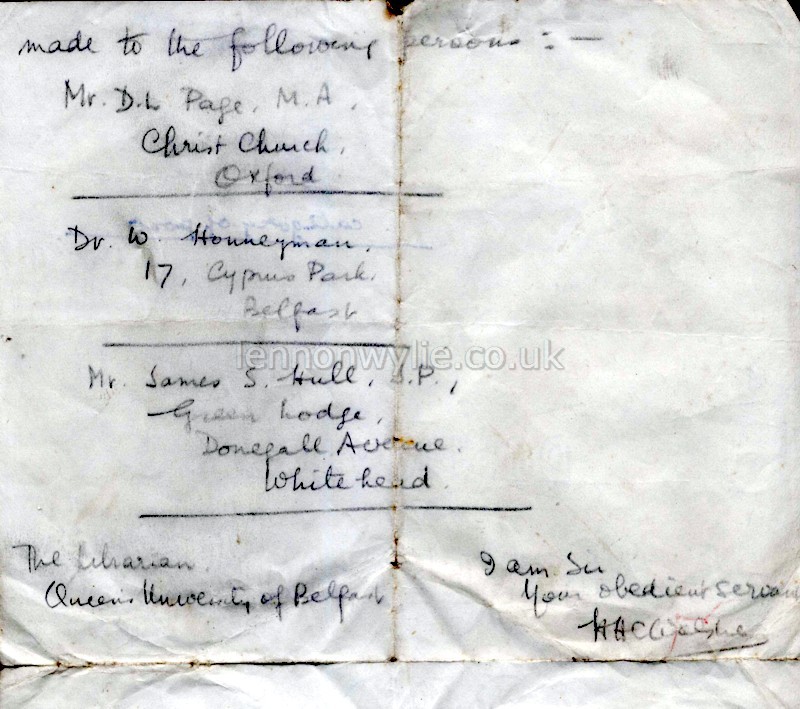 made to the following persons : —
Mr. D.L Page, M.A,
Christ Church,
Oxford
Dr. W. Honneyman,
17, Cyprus Park,
Belfast
lennonwylie.co.uk
Mr. James S. Hull, J.P.,
Green Lodge,
Donegall Avenue.
Whitehead.
The Librarian.
Queens University of Belfast
I am Sir
Your obedient servant